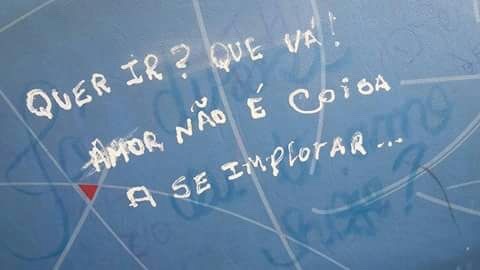 QUER IR? QUE VÁ!
AMOR NÃO É COISA
A SE IMPLORAR...